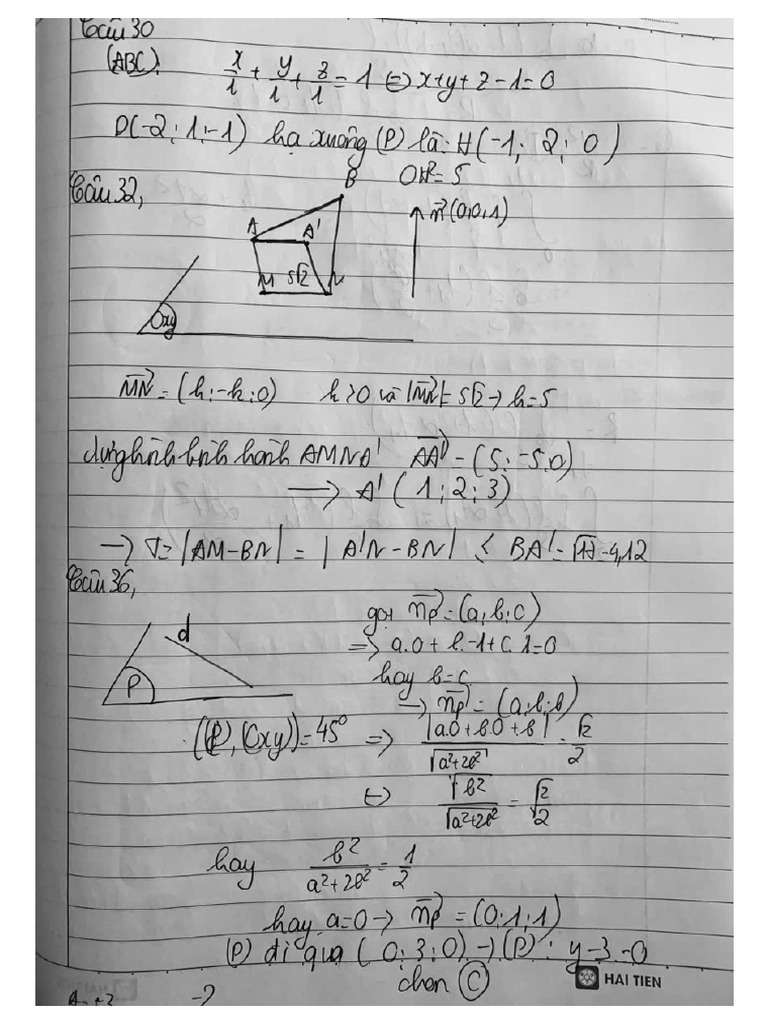 Câu 30
(ABC): x/1 + y/1 + z/1 = 1 ⇔ x+y+z-1=0
D(-2; 1; -1) hạ xuống (P) là: H(-1; 2; 0)
OH²= 5
Câu 32,
B
A A' n⃗(0,0,1)
M 5√2 N
Oxy
MN⃗ = (k; -k; 0) k>0 và |MN⃗| = 5√2 → k=5
dựng hình bình hành AMNA' AA'⃗ = (5; -5; 0)
→ A' (1; 2; 3)
→ T= |AM-BN| = | A'N - BN| ≤ BA' = √17 = 4,12
Câu 36,
gọi np⃗ = (a; b; c)
d
⇒ a.0 + b.-1 + c.1=0
P hay b=c
→ np⃗ = (a; b; b)
((P), (Oxy)) = 45° ⇒ |a.0 + b.0 + b| / √a²+2b² = √2/2
⇔ √b² / √a²+2b² = √2/2
hay b² / a²+2b² = 1/2
hay a=0 → np⃗ = (0; 1; 1)
(P) đi qua ( 0; 3; 0) → (P): y-3=0
chọn C
HAI TIEN